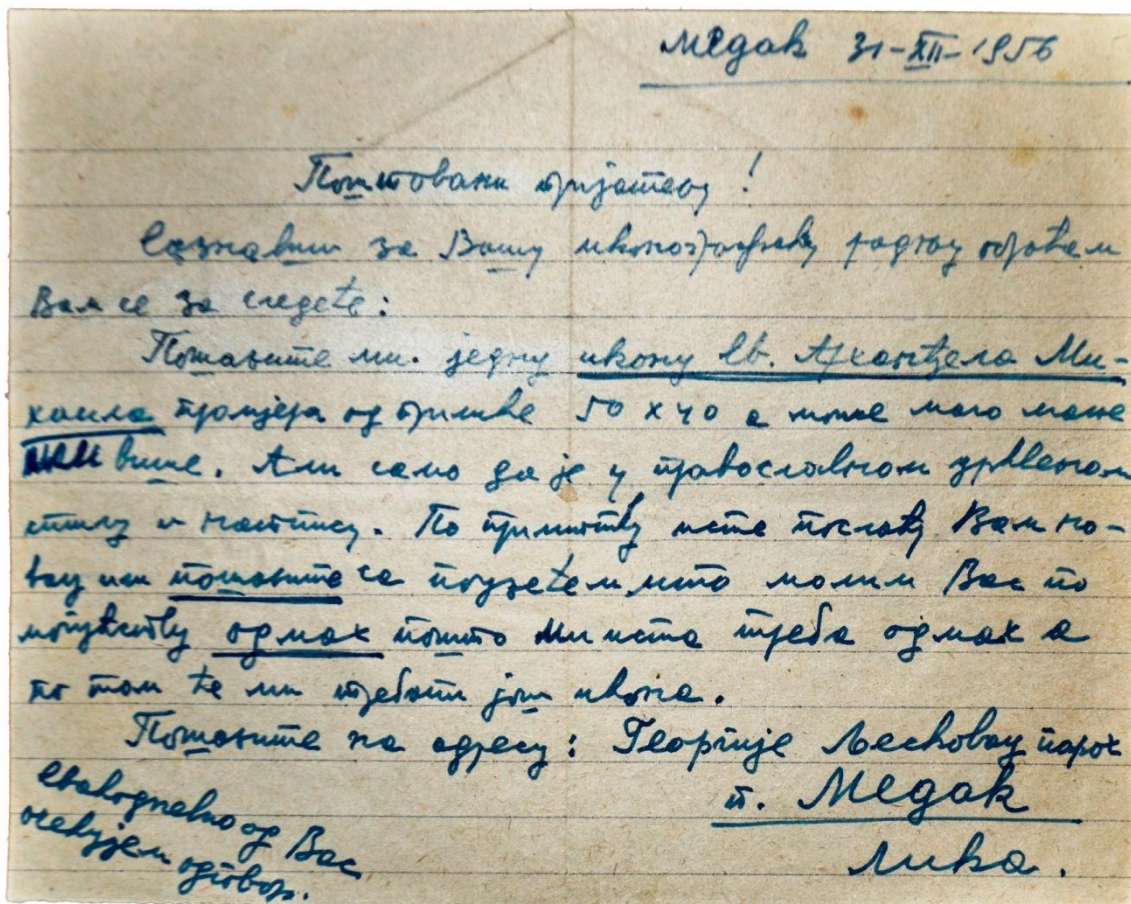 Медак 31-XII-1956
Поштовани пријатељу!
Сазнавши за Вашу иконографску радњу обраћам
Вам се за следеће:
Пошаљите ми једну икону Св. Архангела Ми-
хаила промјера од прилике 50 x 40 а може мало мање
или више. Али само да је у православном црквеном
стилу и натпису. По примитку исте послаћу Вам но-
вац или пошаљите са поузећем што молим Вас по
могућству одмах пошто ми иста треба одмах а
по том ће ми требати још икона.
Пошаљите на адресу: Георгије Љесковац парох
п. Медак
Лика.
Свакодневно од Вас
очекујем одговор.